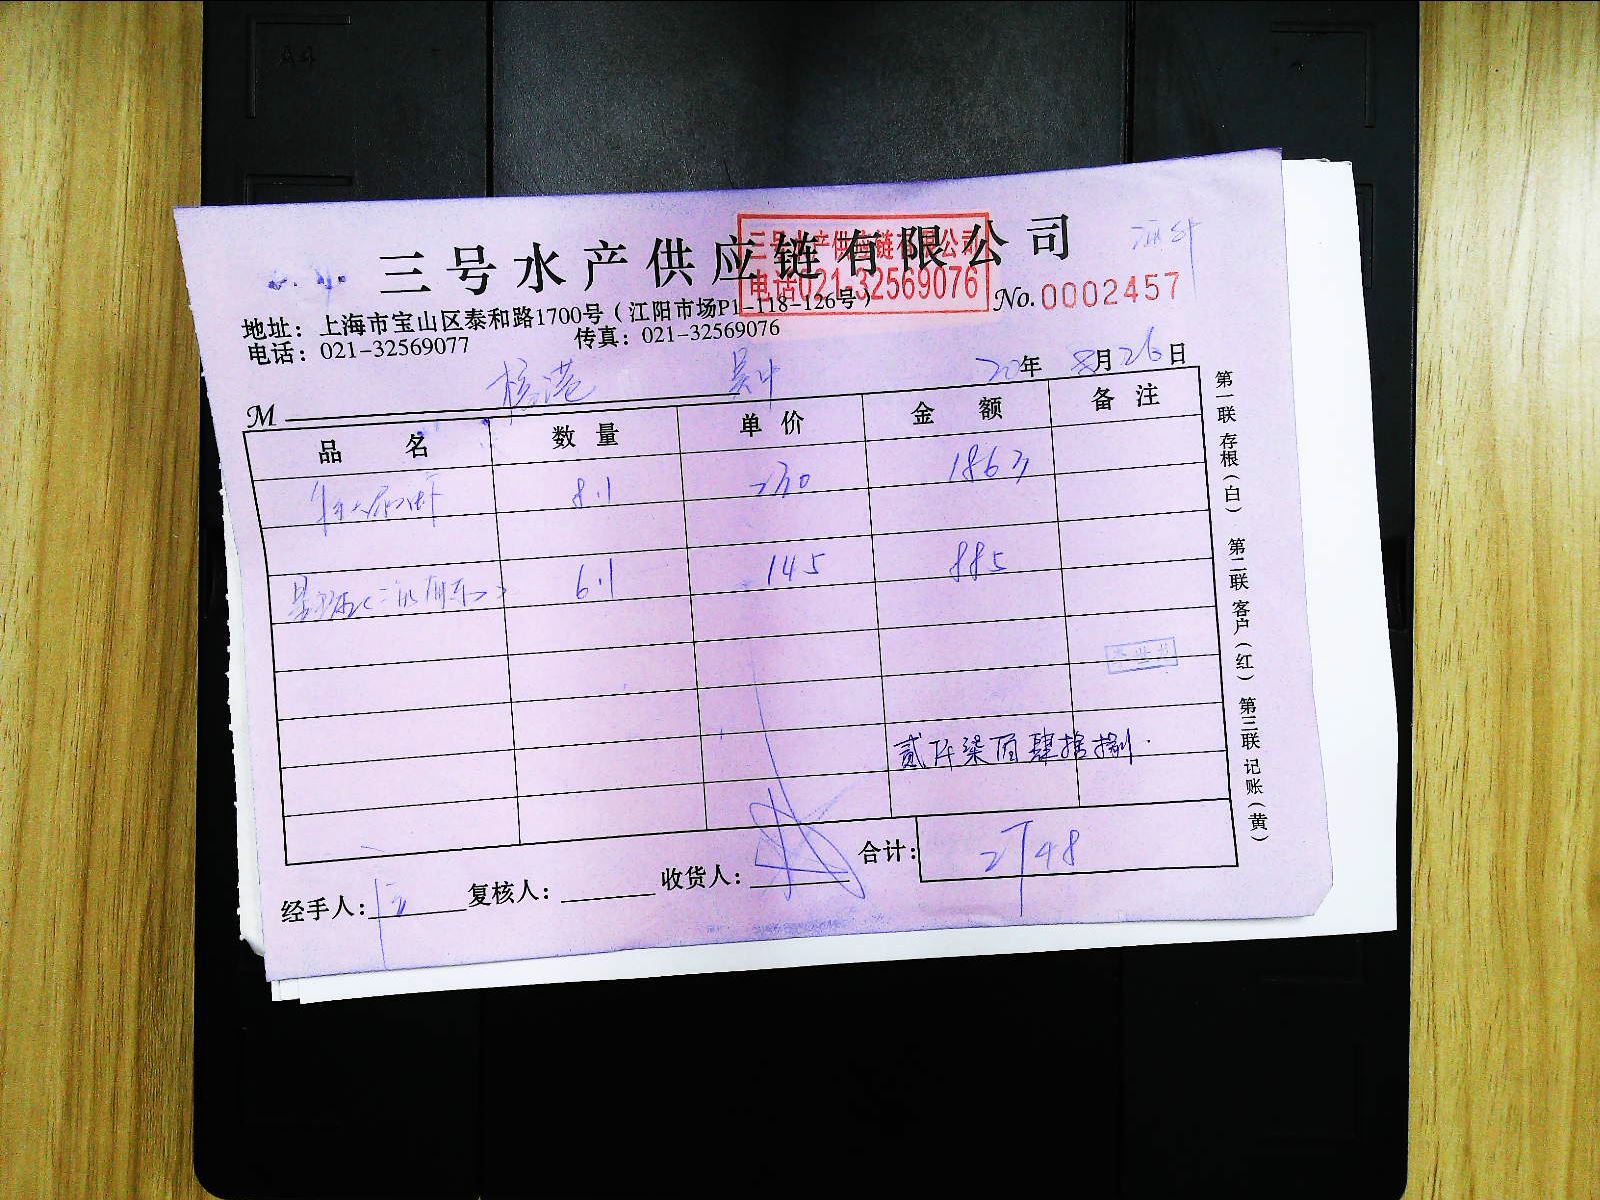 三号水产供应链有限公司
三号水产供应链有限公司
电话021-32569076
No.0002457
地址：上海市宝山区泰和路1700号（江阳市场P1-118-126号）
电话：021-32569077 传真：021-32569076
年 8月26日
M
品名 数量 单价 金额 备注
8.1 230 1863
6.1 145 885
贰仟柒佰肆拾捌
合计： 2748
经手人： 复核人： 收货人：
第一联 存根（白） 第二联 客户（红） 第三联 记账（黄）